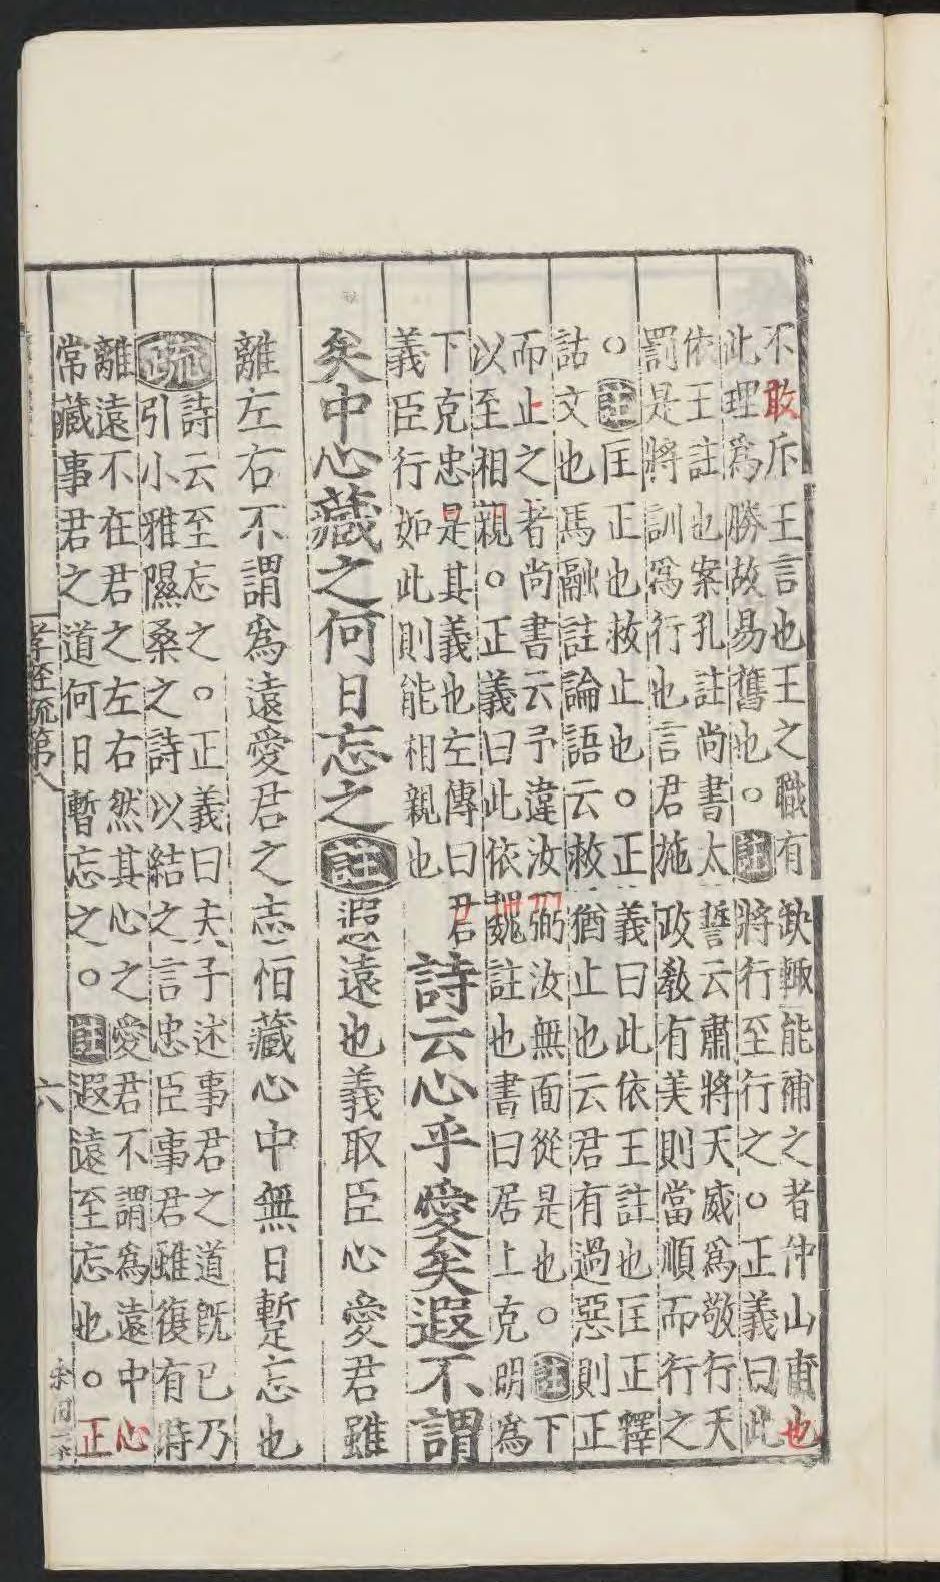 不敢斥王言也王之職有缺輙能補之者仲山甫也
此理爲勝故易舊也。註將行至行之。正義曰此
依王註也案孔註尚書太誓云肅將天威爲敬行天
罰是將訓爲行也言君施政教有美則當順而行之
。註匡正也救止也。正義曰此依王註也匡正釋
詁文也馬融註論語云救猶止也云君有過惡則正
而止之者尚書云予違汝弼汝無面從是也。註下
以至相親。正義曰此依魏註也書曰居上克明爲
下克忠是其義也左傳曰君
義臣行如此則能相親也
詩云心乎愛矣遐不謂
矣中心藏之何日忘之註遐遠也義取臣心愛君雖
離左右不謂爲遠愛君之志恒藏心中無日暫忘也
疏詩云至忘之。正義曰夫子述事君之道旣已乃
引小雅隰桑之詩以結之言忠臣事君雖復有時
離遠不在君之左右然其心之愛君不謂爲遠中心
常藏事君之道何日暫忘之。註遐遠至忘也。正
孝經疏第八
六